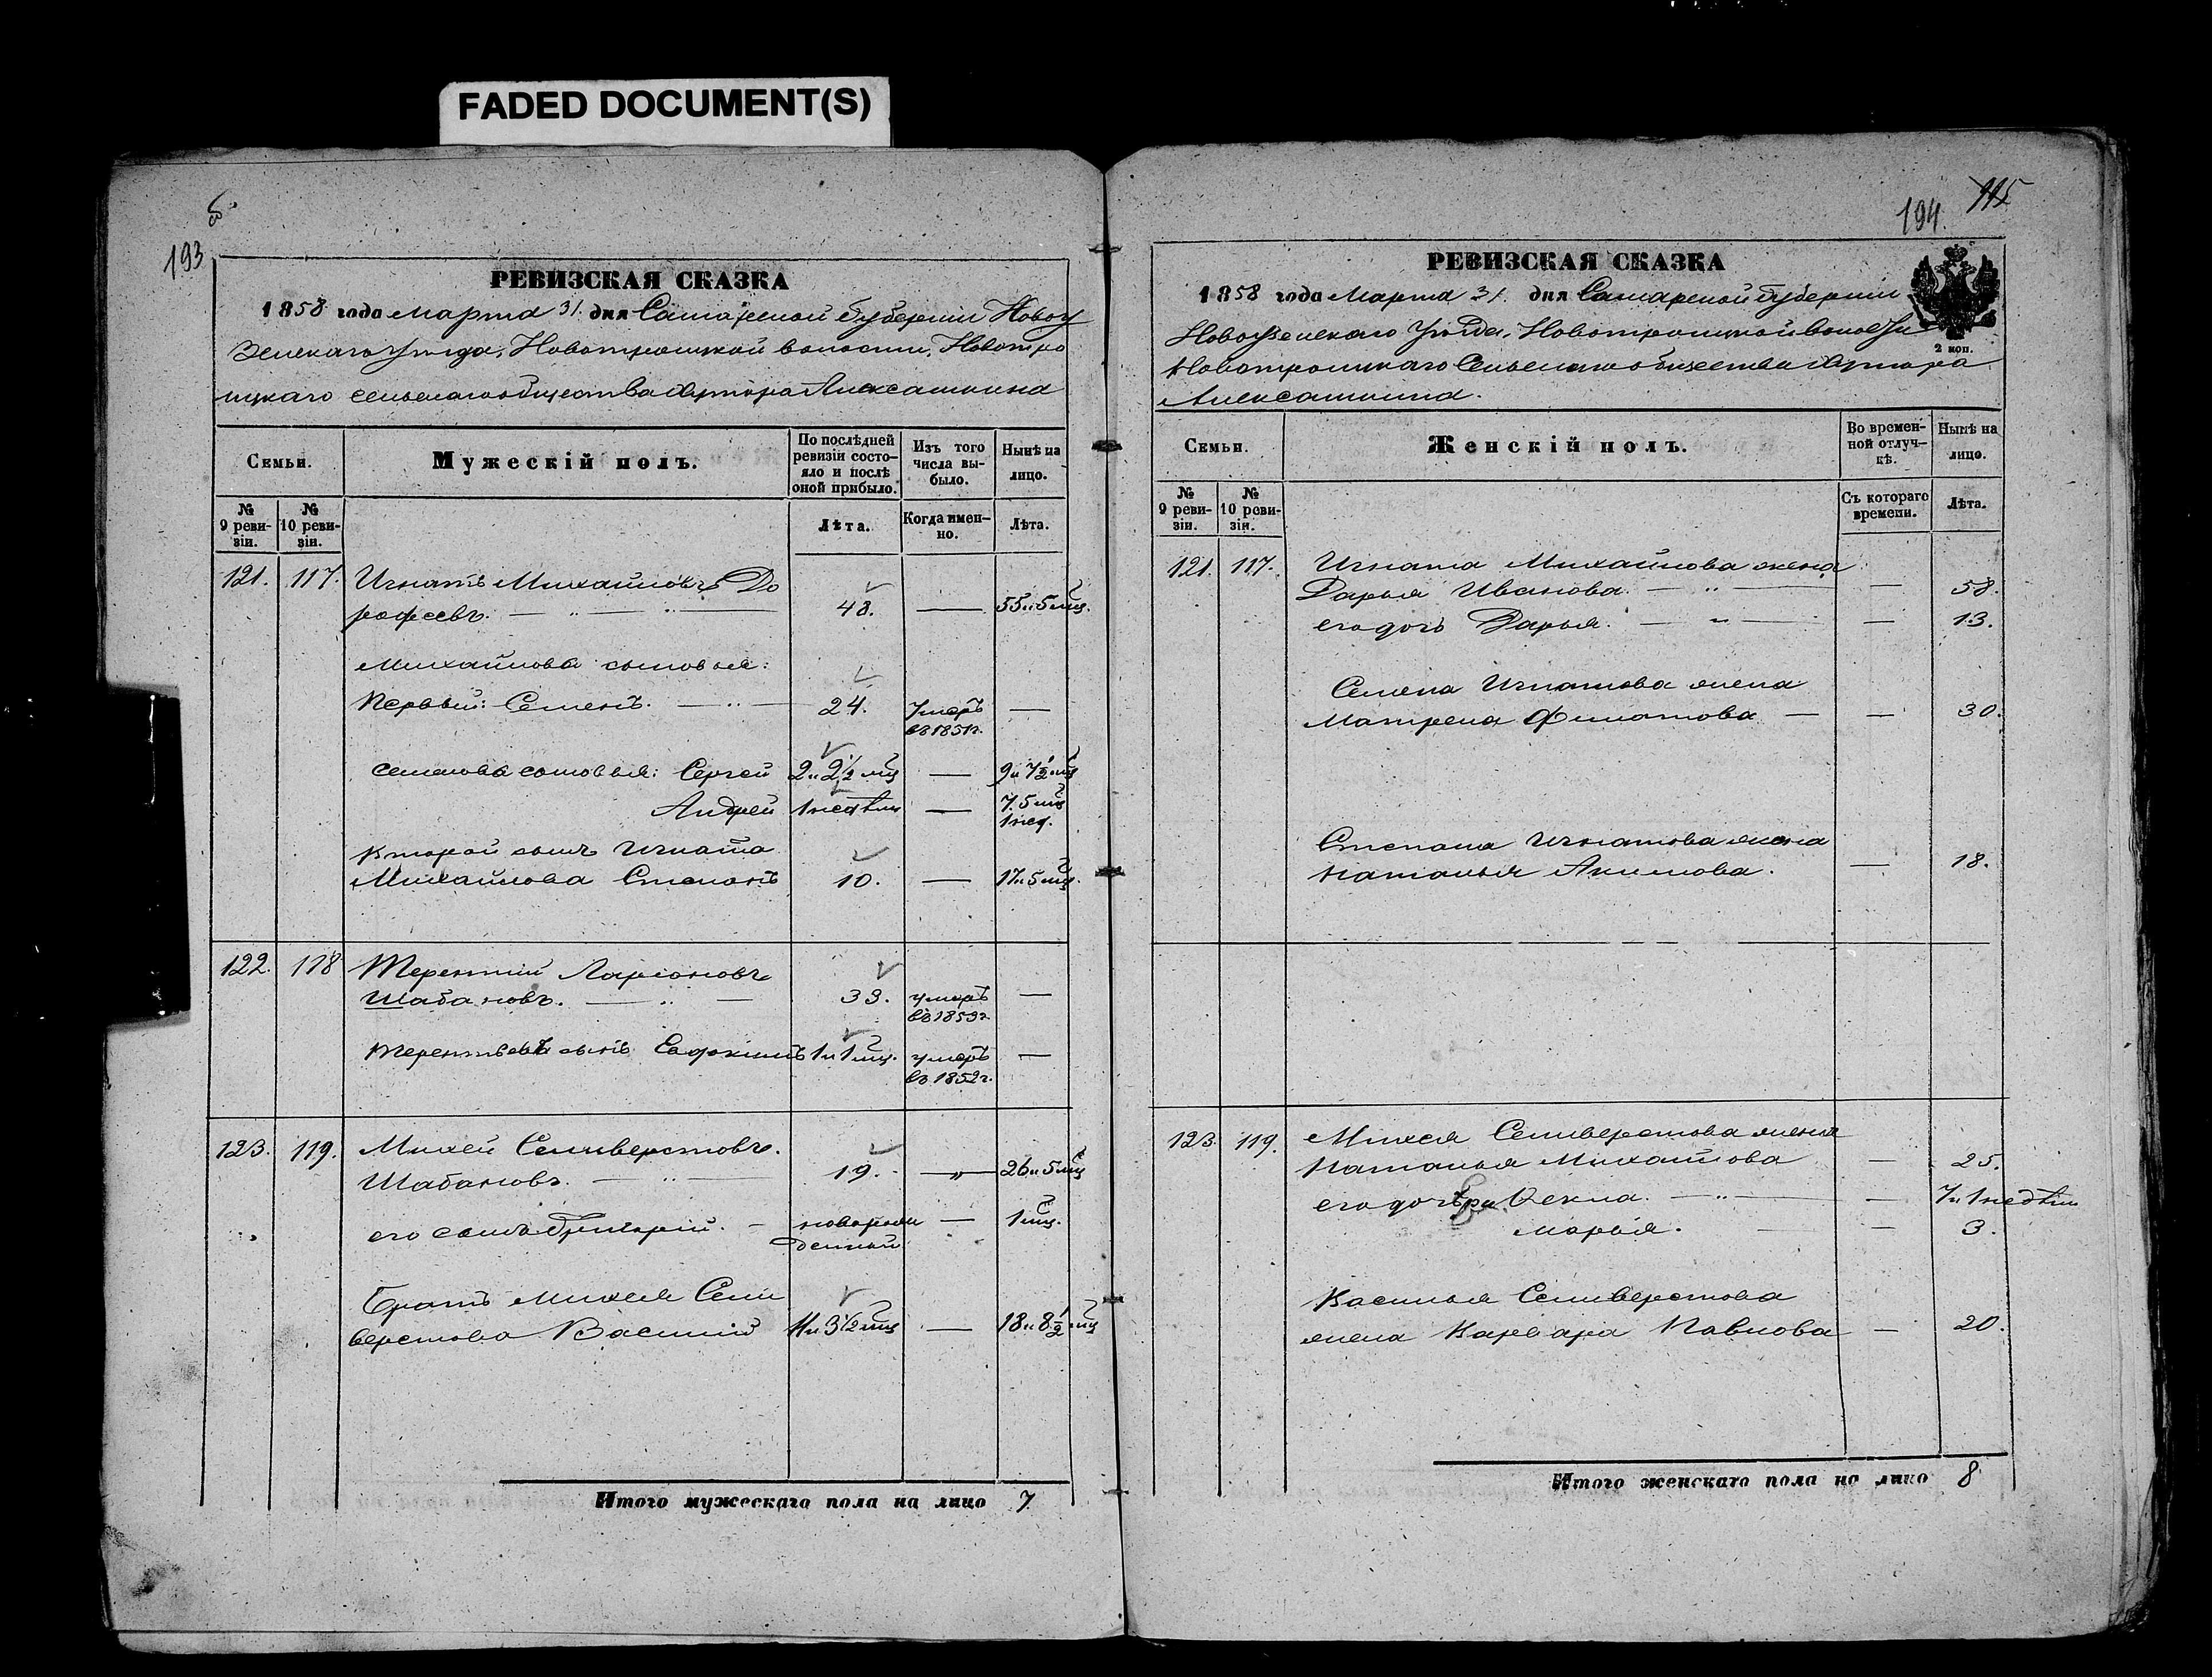 FADED DOCUMENT(S)
193
РЕВИЗСКАЯ СКАЗКА
1858 года Марта 31. дня Самарской Губернии Новоу
зенскаго Уѣзда, Новотроицкой волости, Новотро
ицкаго сельскаго общества хутора Алексашкина
Семьи.
Мужескій полъ.
По послѣдней ревизіи состояло и послѣ оной прибыло.
Изъ того числа выбыло.
Нынѣ на лицо.
№ 9 ревизіи.
№ 10 ревизіи.
Лѣта.
Когда именно.
Лѣта.
121. 117. Игнатъ Михайловъ До
рофеевъ. 48. — 55 и 5 мц.
Михайлова сыновья:
Первый: Семенъ. 24. умеръ —
въ 1851 г.
Семенова сыновья: Сергей 2 и 2 1/2 мц — 9 и 7 1/2 мц
Андрей 1 недѣли — 7. 5 мц
1 нед.
Второй сынъ Игната
Михайлова Степанъ 10. — 17 и 5 мц.
122. 118 Терентий Ларионовъ
Шабановъ. 33. умеръ —
въ 1853 г.
Терентьевъ сынъ Евдокимъ 1 и 1 мц. умеръ —
въ 1852 г.
123. 119. Михей Селиверстовъ.
Шабановъ. 19. — 26 и 5 мц
его сынъ Григорий. — новорож — 1 мц.
денный
Братъ Михея Сели
верстова Василий 11 и 3 1/2 мц — 18 и 8 1/2 мц
Итого мужескаго пола на лицо 7.
194. 115
РЕВИЗСКАЯ СКАЗКА
1858 года Марта 31. дня Самарской Губернии
Новоузенскаго Уѣзда, Новотроицкой волости
Новотроицкаго Сельскаго общества хутора
Алексашкина.
2 коп.
Семьи.
Женскій полъ.
Во временной отлучкѣ.
Нынѣ на лицо.
№ 9 ревизіи.
№ 10 ревизіи.
Съ котораго времени.
Лѣта.
121. 117. Игната Михайлова жена
Дарья Иванова. — 58.
его дочь Дарья. — 13.
Семена Игнатова жена
Матрена Филатова — — 30.
Степана Игнатова жена
Наталья Акимова. — 18.
123. 119. Михея Селиверстова жена
Наталья Михайлова — 25.
его дочери Фекла. — 7 и 1 недѣли
Марья. — 3.
Василья Селиверстова
жена Варвара Павлова — 20.
Итого женскаго пола на лицо 8